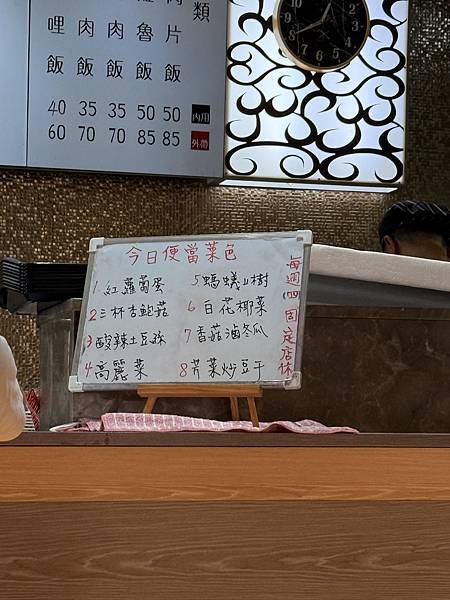 類
哩 肉 肉 魯 片
飯 飯 飯 飯 飯
40 35 35 50 50 內用
60 70 70 85 85 外帶
今日便當菜色
1. 紅蘿蔔蛋
2 三杯杏鮑菇
3 酸辣土豆絲
4 高麗菜
5 螞蟻上樹
6 白花椰菜
7 香菇滷冬瓜
8 芹菜炒豆干
每週四固定店休